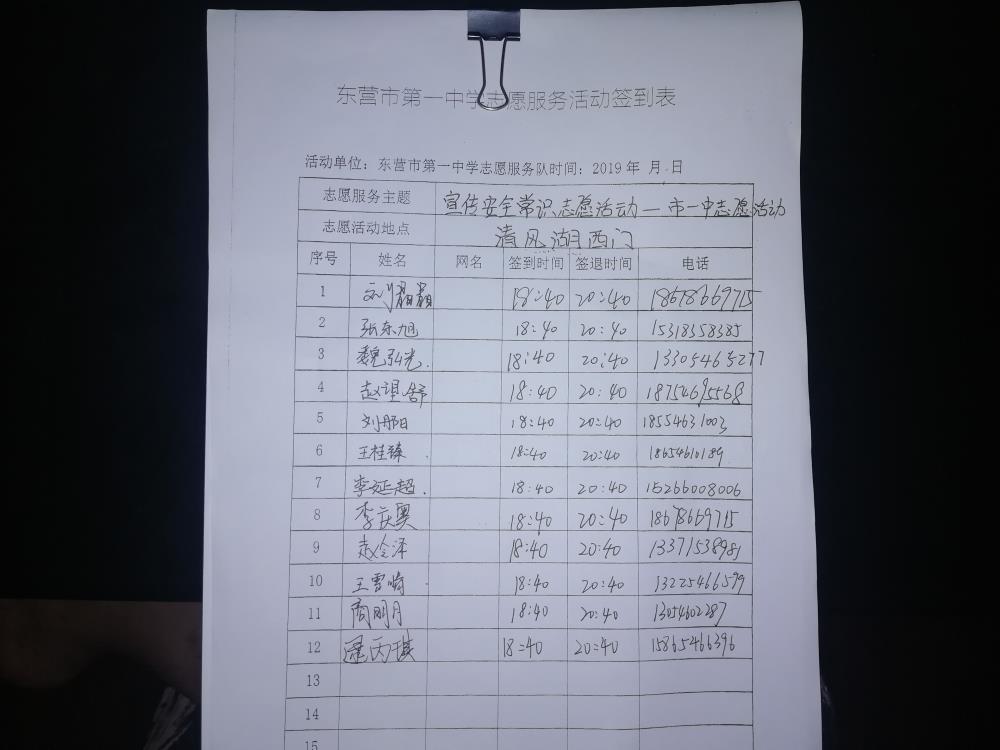 东营市第一中学志愿服务活动签到表
活动单位：东营市第一中学志愿服务队时间：2019 年 月 日
志愿服务主题 宣传安全常识志愿活动—市一中志愿活动
志愿活动地点 清风湖西门
序号 姓名 网名 签到时间 签退时间 电话
1 18:40 20:40 18678669715
2 张东旭 18:40 20:40 15318358385
3 魏弘光. 18:40 20:40 13305465277
4 赵望舒 18:40 20:40 18754695568
5 18:40 20:40 18554631003
6 王桂臻 18:40 20:40 18654610189
7 李延超. 18:40 20:40 15266008006
8 李庆奥 18:40 20:40 18678669715
9 18:40 20:40 13371538981
10 18:40 20:40 13225466599
11 商明月 18:40 20:40 13054602287
12 18:40 20:40 15865466396
13
14
15